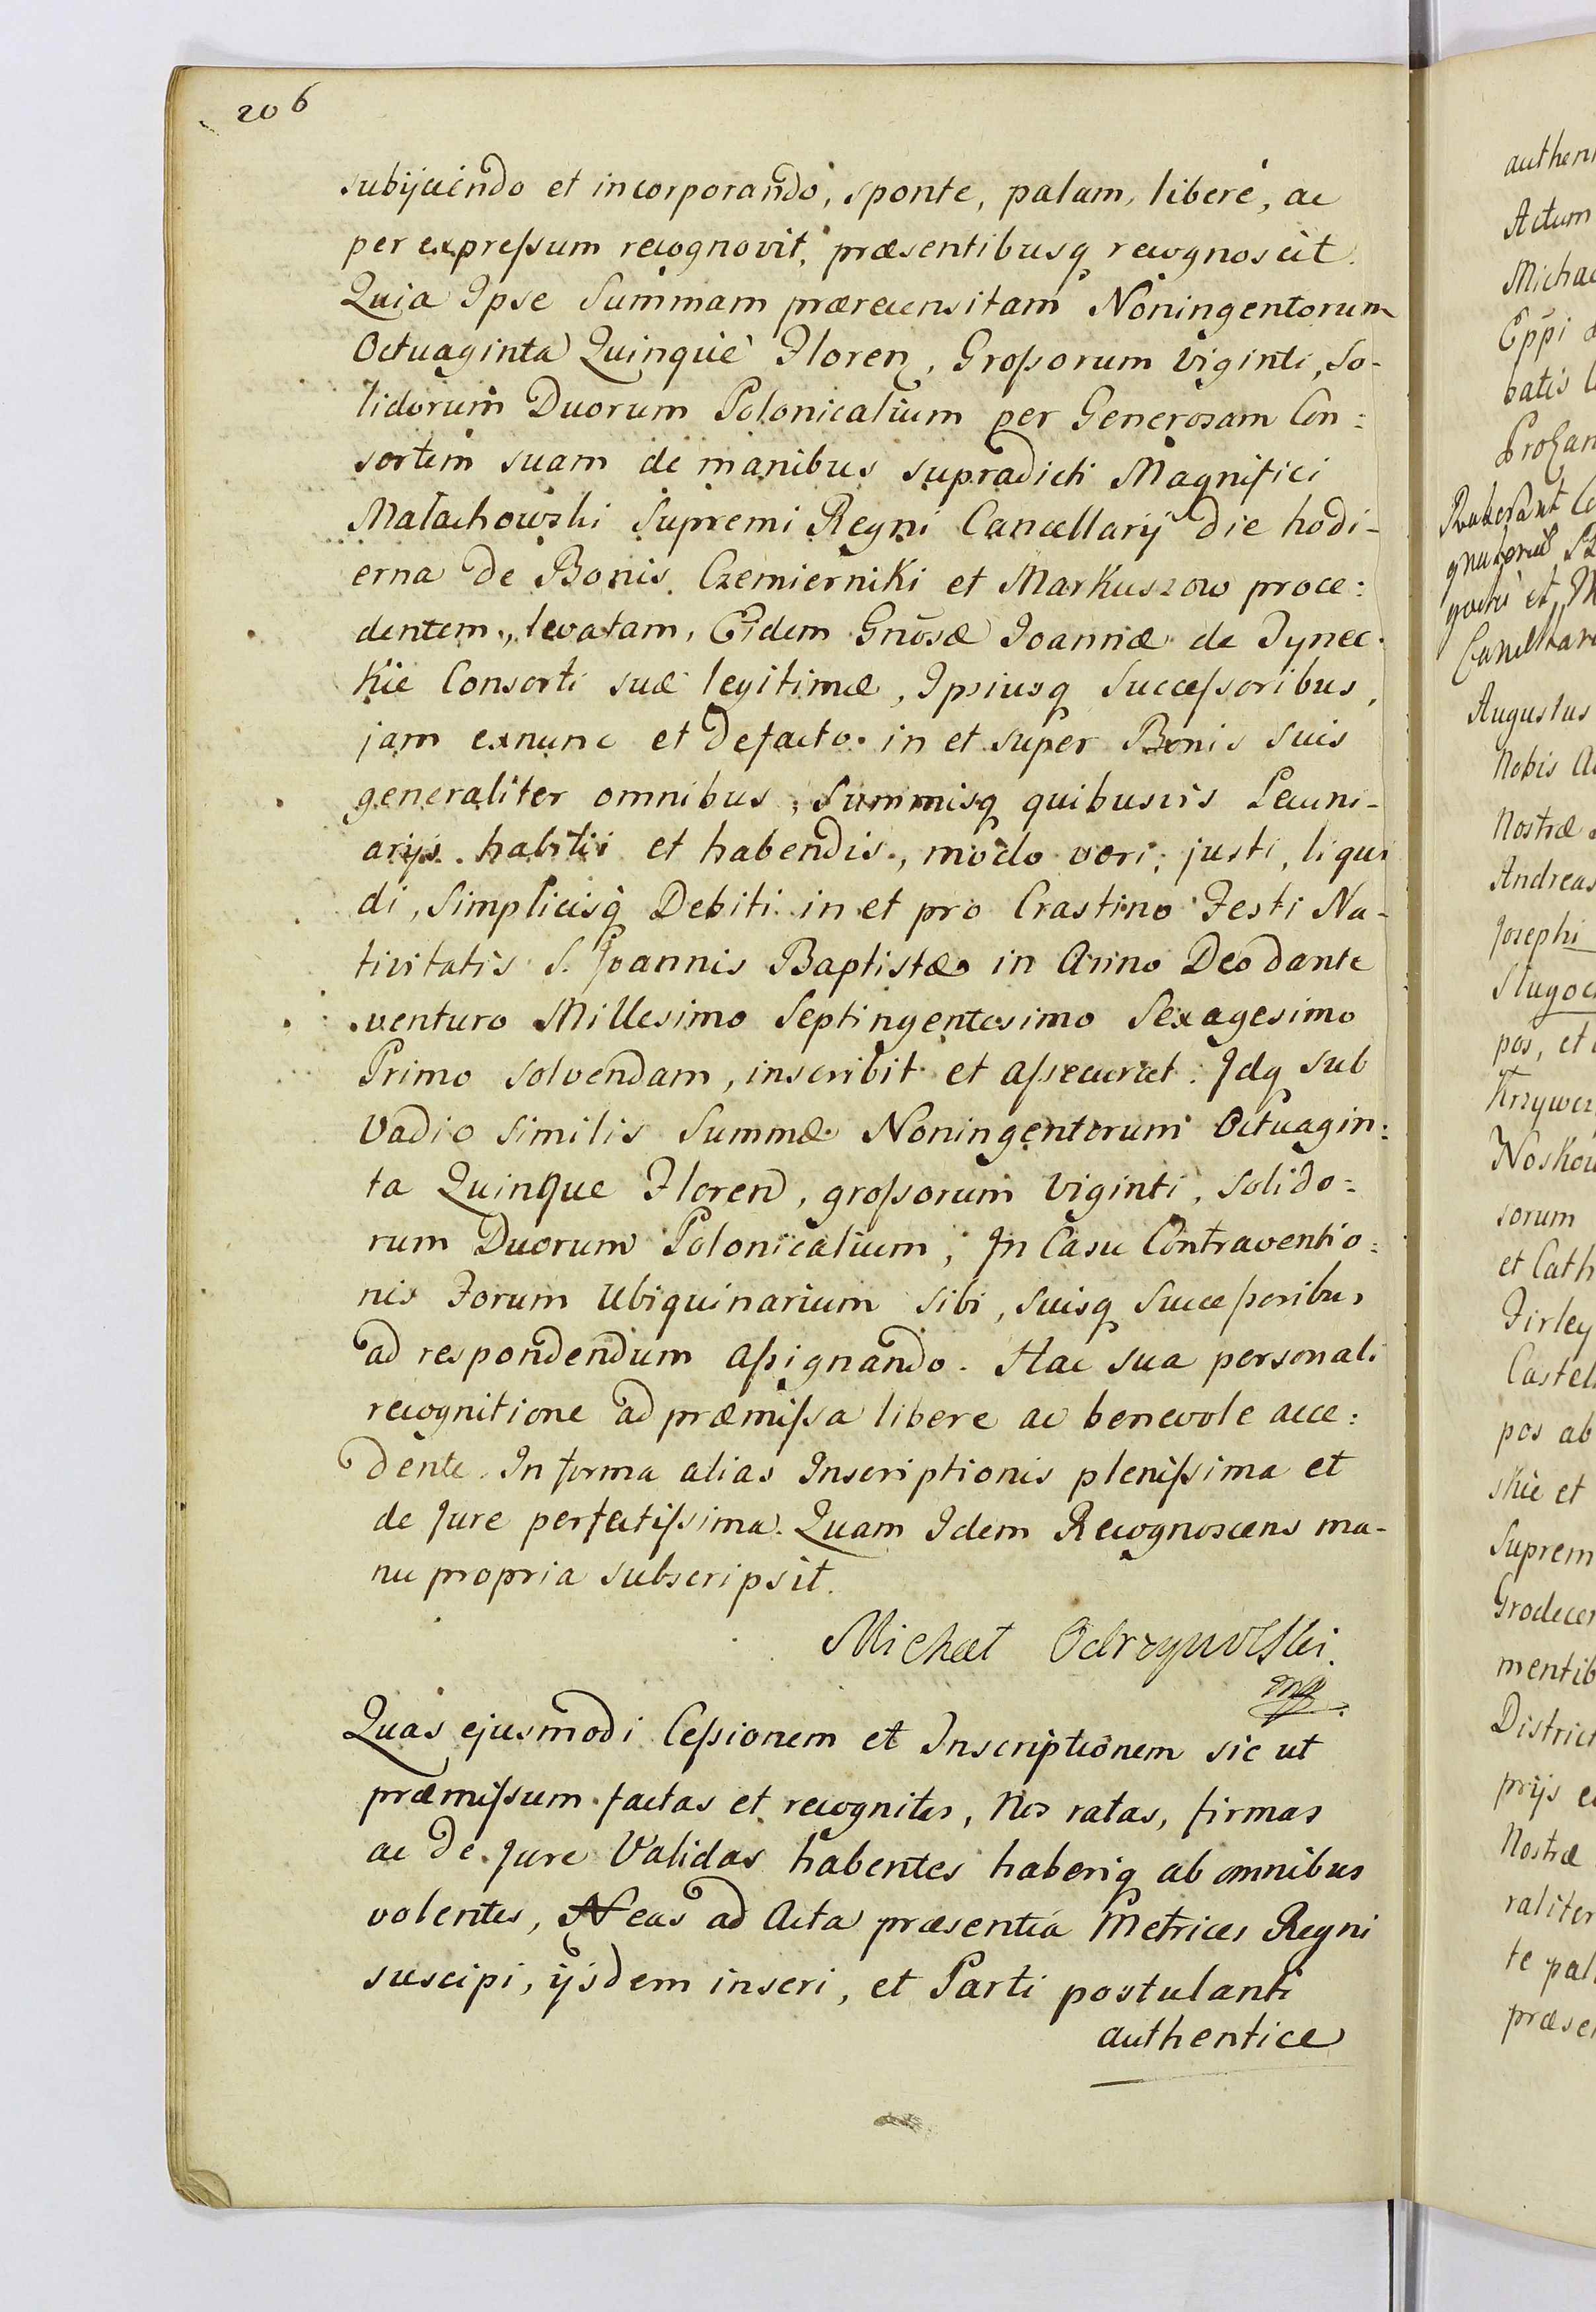 206
subijciendo et incorporando, sponte, palam, liberè, ac
per expreſsum recognovit, præsentibusq recognoscit.
Quia Ipse Summam prærecensitam Noningentorum
Octuaginta Quinque Floren, Groſsorum Viginti, So-
lidorum Duorum Polonicalium per Generosam Con:
sortem suam de manibus supradicti Magnifici
Małachowski Supremi Regni Cancellarij die hodi-
erna de Bonis Czemierniki et Markuszow proce:
dentem, levatam, Eidem Gnõsæ Joannæ de Tynec-
kie Consorti suæ legitimæ, Ipsiusq Succeſsoribus,
jam exnunc et defacto in et super Bonis Suis
generaliter omnibus, Summisq quibusvis Pecuni-
arijs habitis et habendis, modo veri, justi, liqui
di, Simplicisq Debiti in et pro Crastino Festi Na-
tivitatis S. Joannis Baptistæ in Anno Deo dante
venturo Millesimo Septingentesimo Sexagesimo
Primo solvendam, inscribit et aſsecurat. Idq sub
Vadio Similis Summæ Noningentorum Octuagin:
ta Quinque Floren, groſsorum Viginti, Solido:
rum Duorum Polonicalium, In Casu Contraventio:
nis Forum Ubiquinarium sibi, Suisq Succeſsoribus
ad respondendum aſsignando. Hac sua personali
recognitione ad præmiſsa libere ac benevole acce:
dente. In forma alias Inscriptionis pleniſsima et
de Jure perfectiſsima. Quam Idem Recognoscens ma-
nu propria subscripsit.
Michał Odrzywolski.
mp
Quas ejusmodi Ceſsionem et Inscriptionem sic ut
præmiſsum factas et recognitas, Nos ratas, firmas
ac de Jure Validas habentes haberiq ab omnibus
volentes, eas ad Acta præsentia Metrices Regni
suscipi, ijsdem inseri, et Parti postulanti
authentice
authen
Actum
Michae
Eppi
batis
Augustus
Nobis
Nostræ
Andreas
Josephi
Sługoc
pos, et
Krzywcz
Noskow
sorum
et Cath
Firley
Castel
pos ab
skie et
Suprem
Grodecen
mentib
District
prijs
Nostræ
raliter
te pal
præse